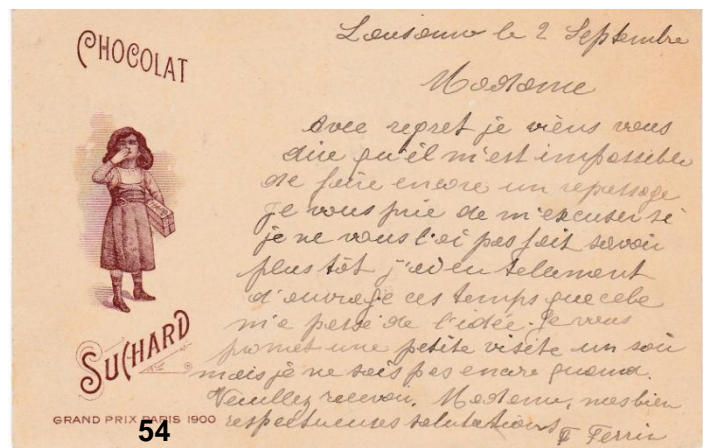 CHOCOLAT
SUCHARD
GRAND PRIX PARIS 1900
54
Lausanne le 2 Septembre
Madame
Avec regret je viens vous
dire qu'il m'est impossible
de faire encore un repassage
je vous prie de m'excuser si
je ne vous l'ai pas fait savoir
plus tôt j'ai eu telement
d'ouvrage ces temps que cela
m'a passé de l'idée. Je vous
promet une petite visite un soir
mais je ne sais pas encore quand.
Veuillez recevoir, Madame, mes bien
respectueuses salutations
F Ferrin